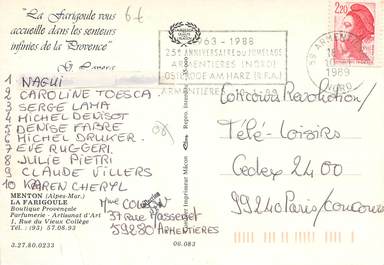 "La Farigoule vous
accueille dans les senteurs
infinies de la Provence"
67
1 NAGUI
2 CAROLINE TOESCA
3 SERGE LAMA
4 MICHEL DENISOT
5 DENISE FABRE
6 MICHEL DRUKER.
7 EVE RUGGERI.
8 JULIE PIETRI
9 CLAUDE VILLERS
10 KAREN CHERYL
MENTON (Alpes-Mar.)
LA FARIGOULE
Boutique Provençale
Parfumerie - Artisanat d'Art
1, Rue du Vieux Collège
Tél. (93) 57.08.93
3.27.80.0233
06.083
Mme
37 rue Masseget
59280 ARMENTIERES
Imprimeur Mâcon
1963 - 1988
25e ANNIVERSAIRE du JUMELAGE
ARMENTIERES (NORD)
OSTERODE AM HARZ (R.F.A.)
ARMENTIERES
2,20
59 ARMENTIERES
1989
NORD
Concours Revolution/
Télé-Loisirs
Cedex 2400
99240 Paris/concours